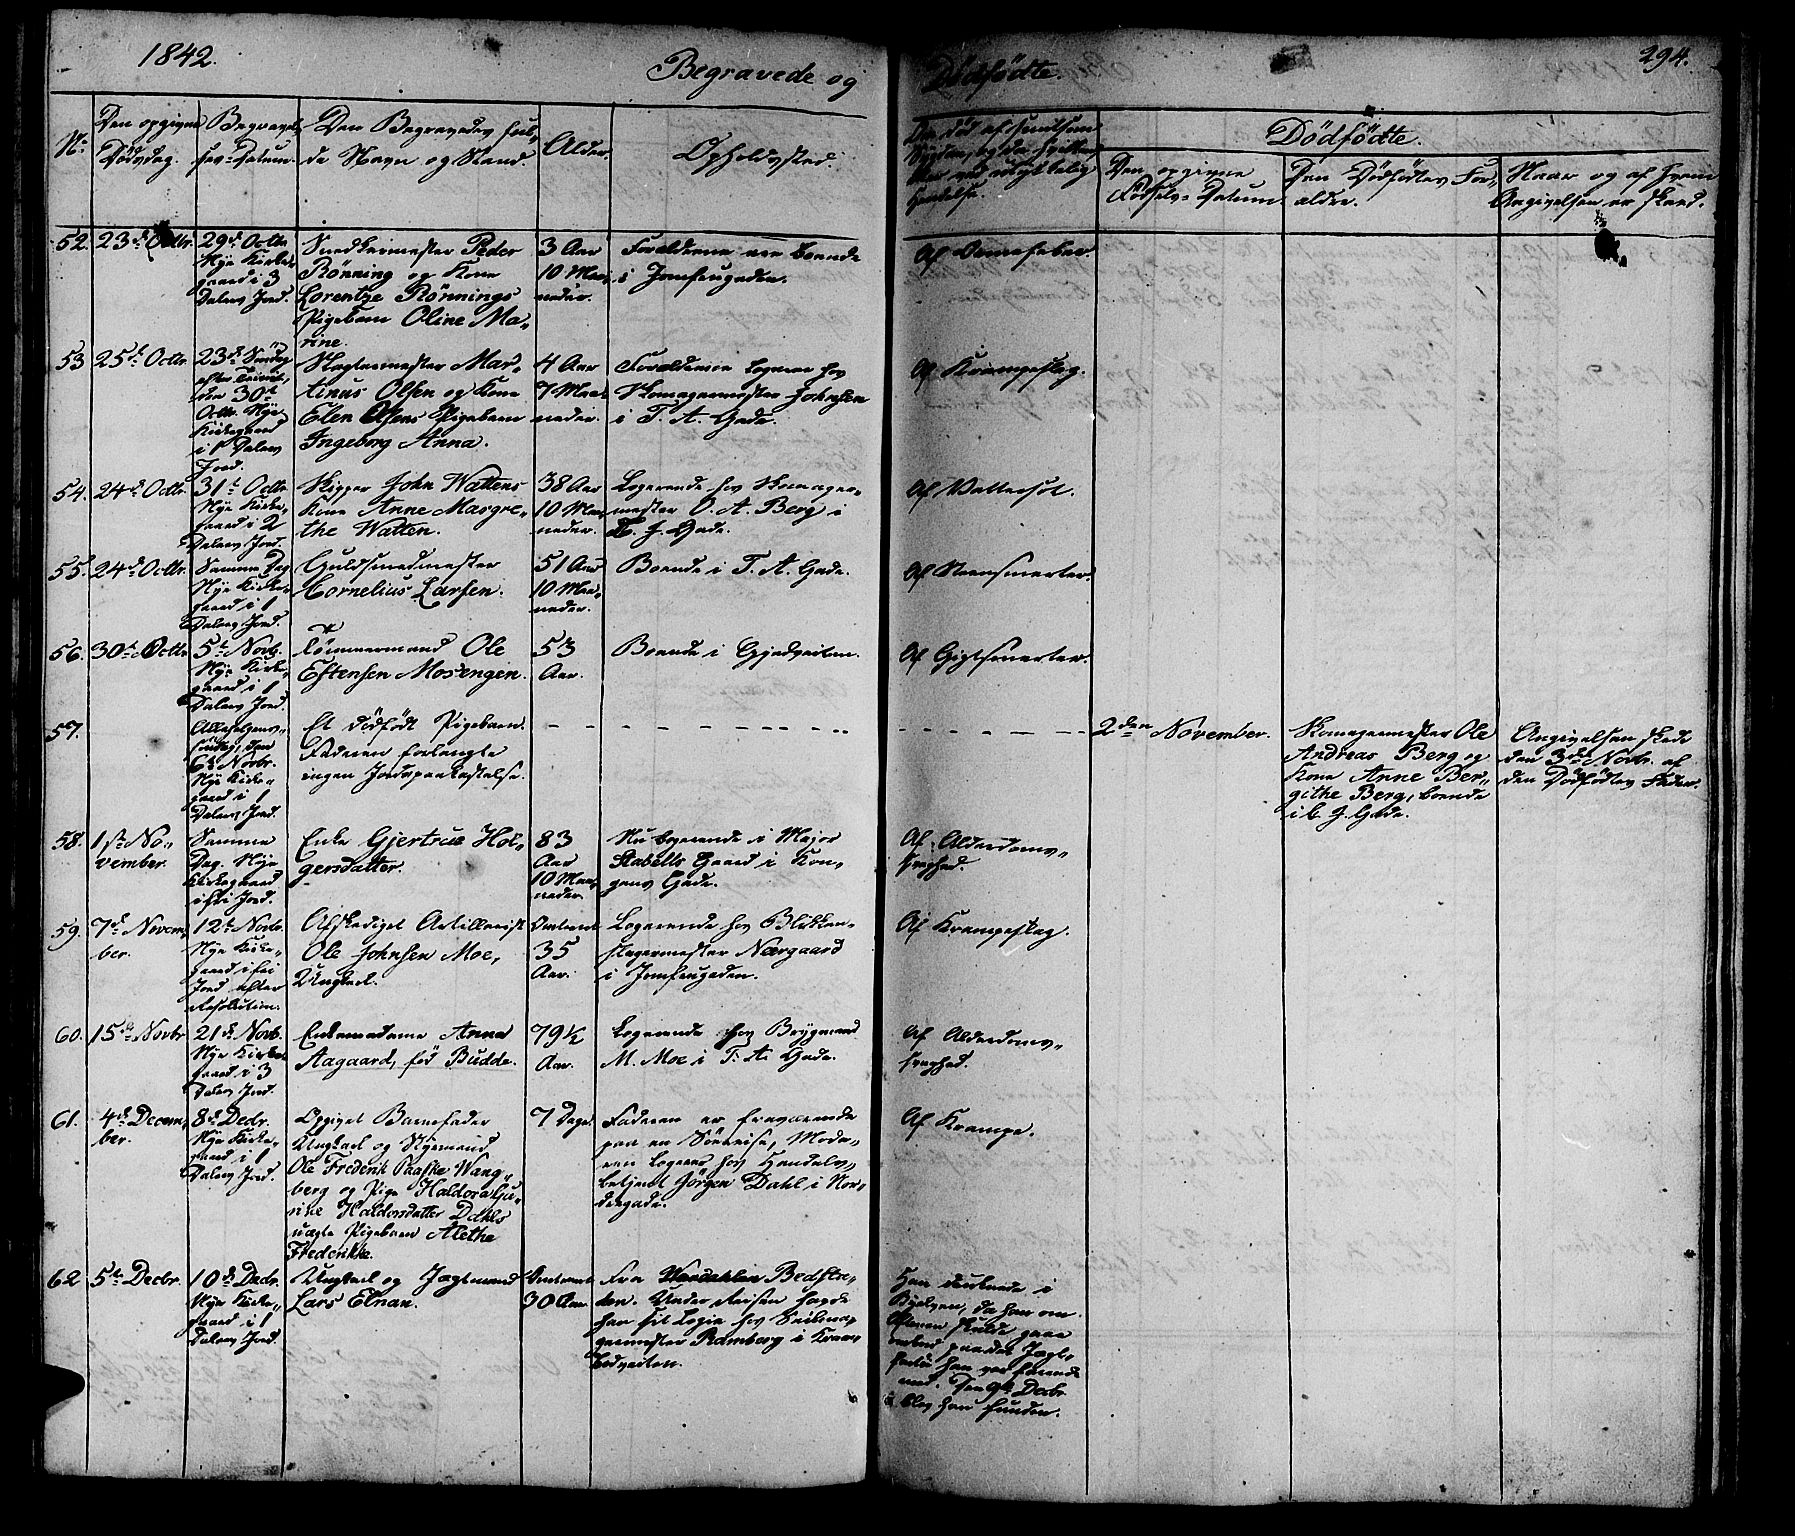 1842.
Begravede og
Dödfödte.
294.
No
Den opgivne
Dödsdag.
Begravel-
ses-Datum.
Den Begravedes ful-
de Navn og Stand.
Alder.
Opholdssted.
Dödfödte.
Den opgivne
Födsels-Datum.
Den Dödfödtes For-
ældre.
Naar og af hvem
Angivelsen er skeed.
52.
23d Octbr.
29d Octbr.
Nye Kirke-
gaard i 3
Dalers Jord.
Snedkermester Peder
Rönning og Kone
Lorentze Rönnings
Pigebarn Oline Ma-
rine.
3 Aar
10 Maa-
neder.
Forældrene ere boende
i Jomfrugaden.
53
25d Octbr.
23d Söndag
efter
den 30te
Octbr. Nye
Kirkegaard
i 1 Dalers
Jord.
Slagtermester Mar-
tinus Olsen og Kone
Elen Olsens Pigebarn
Ingeborg Anna.
4 Aar
7 Maa-
neder.
Forældrene logerer hos
Skomagermester Johnsen
i T. A. Gade.
Af Krampeslag.
54.
24d Octbr.
31te Octbr.
Nye Kirke-
gaard i 2
Dalers Jord.
Skipper John Wattens
Kone Anne Margre-
the Watten.
38 Aar
10 Maa-
neder.
Logerende hos Skomager-
mester O. A. Berg i
J. Gade.
Af Vattersot.
55.
24d Octbr.
Samme Dag
Nye Kirke-
gaard i 1
Dalers Jord.
Guldsmedmester
Cornelius Larsen.
51 Aar
10 Maa-
neder.
Boende i T. A. Gade.
Af Steensmerter.
56.
30te Octbr.
5te Novb.
Nye Kirke-
gaard i 1
Dalers Jord.
Tömmermand Ole
Eftensen Mosengen.
53
Aar.
Boende i Gjedveiten.
Af Gigtsmerter.
57.
Allehelgens-
söndag, den
6te Novbr.
Nye Kirke-
gaard i 1
Dalers Jord.
Et dödfödt Pigebarn.
Faderen forlangte
ingen Jordspaakastelse.
2den November.
Skomagermester Ole
Andreas Berg og
Kone Anne Ber-
githe Berg, boende
i J. Gade.
Angivelsen skede
den 3de Novbr. af
den Dödfödtes Fader.
58.
1ste No-
vember.
Samme
Dag. Nye
Kirkegaard
i fri Jord.
Enke Gjertrue Hol-
gersdatter.
83
Aar
10 Maa-
neder.
Nu logerende i Major
Stabells Gaard i Kon-
gens Gade.
Af Alderdoms-
svaghed.
59.
7d Novem-
ber.
12te Novb.
Nye Kirke-
gaard i fri
Jord efter
Resolution.
Afskediget Artillerist
Ole Johnsen Moe,
Ungkarl.
Omtrent
35
Aar.
Logerende hos Blikken-
slagermester Nærgaard
i Jomfrugaden.
Af Krampeslag.
60.
15de Novbr
21de Novb.
Nye Kirke-
gaard i 3
Dalers Jord.
Enkemadame Anna
Aagaard, föd Budde.
79 1/2
Aar.
Logerende hos Brygmand
M. Moe i T. A. Gade.
Af Alderdoms-
svaghed.
61.
4de Decem-
ber.
8de Decbr.
Nye Kirke-
gaard i 1
Dalers Jord.
Opgivet Barnefader
Ungkarl og Styrmand
Ole Frederik Paaske Wang-
berg og Pige Haldora Gu-
rine Haldorsdatter Dahls
uægte Pigebarn Alethe
Frederikke.
7 Dage.
Faderen er fraværende
paa en Söereise, Mode-
ren logerer hos Handels-
betjent Jörgen Dahl i Nor-
dregade.
Af Krampe.
62
5te Decbr.
10de Decbr.
Nye Kirke-
gaard i 1
Dalers Jord.
Ungkarl og Jagtmand
Lars Elnan.
Omtrent
30 Aar.
Fra
Under Reisen havde
han sit Logie hos Seilma-
germester Ramberg i Kram-
bodveiten.
Han druknede i
Byelven, da han om
Aftenen skulde gaae
ombord paa det Jagt-
fartöi han var farende
med. Den 9de Decbr.
blev han funden.